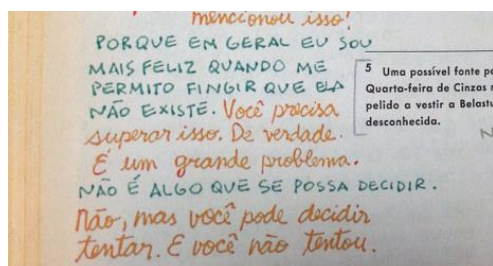 mencionou isso!
PORQUE EM GERAL EU SOU
MAIS FELIZ QUANDO ME
PERMITO FINGIR QUE ELA
NÃO EXISTE. Você precisa
superar isso. De verdade.
É um grande problema.
NÃO É ALGO QUE SE POSSA DECIDIR.
Não, mas você pode decidir
tentar. E você não tentou.
5 Uma possível fonte
Quarta-feira de Cinzas
pelido a vestir a
desconhecida.